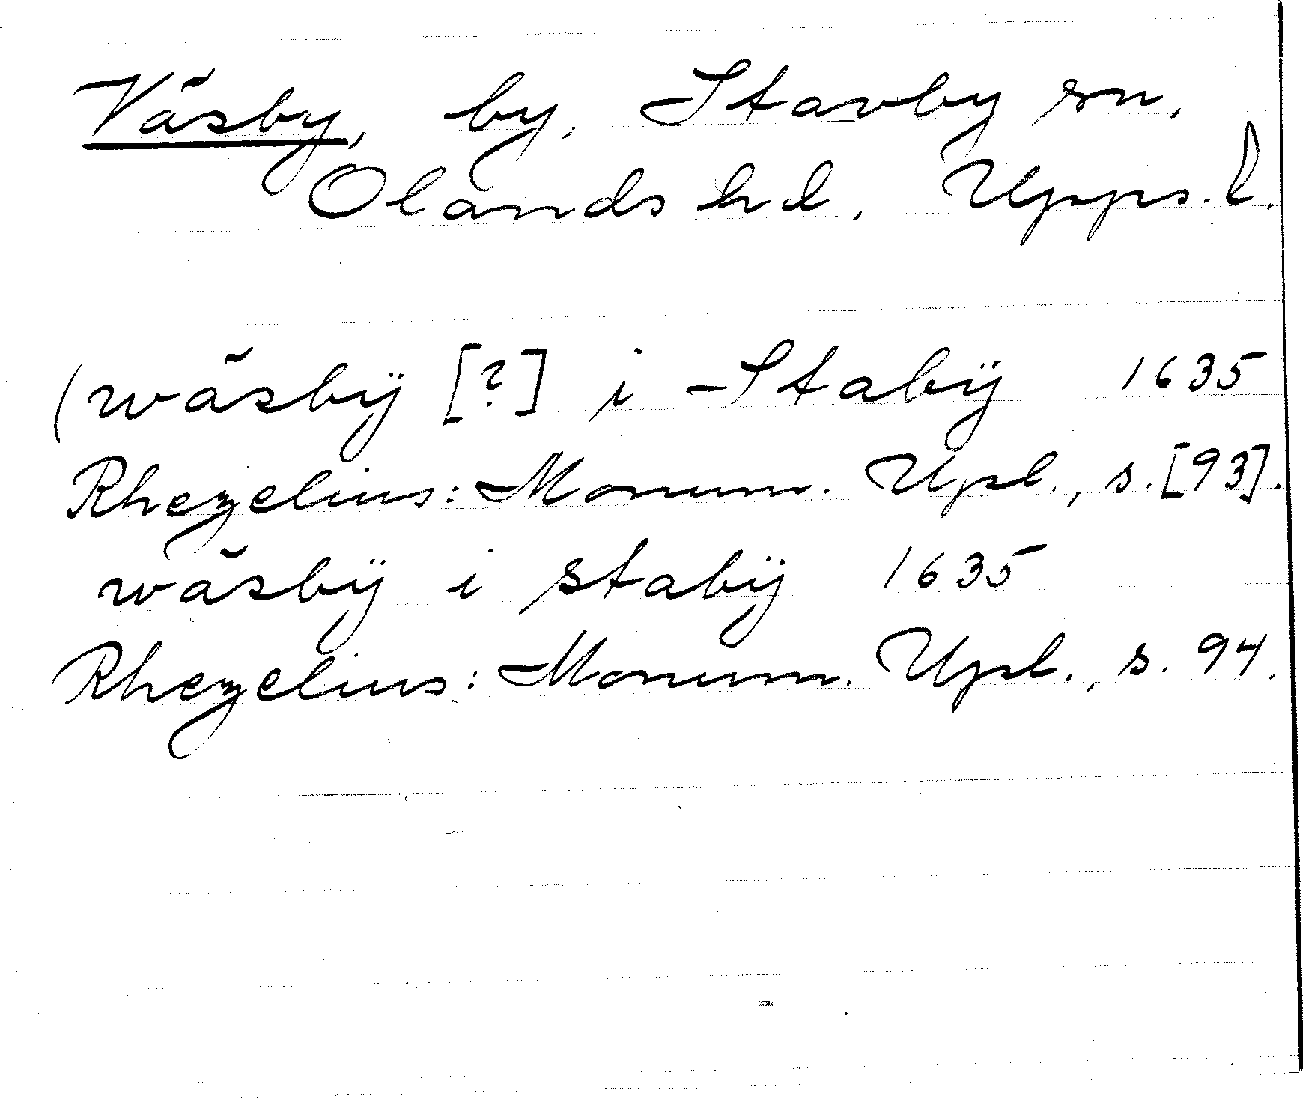 Väsby, by, Stavby sn,
Olands hd, Upps. l.
(wäsbÿ [?] i Stabÿ 1635
Rhezelius: Monum. Upl., s. [93].
wäsbÿ i stabÿ 1635
Rhezelius: Monum. Upl., s. 94.